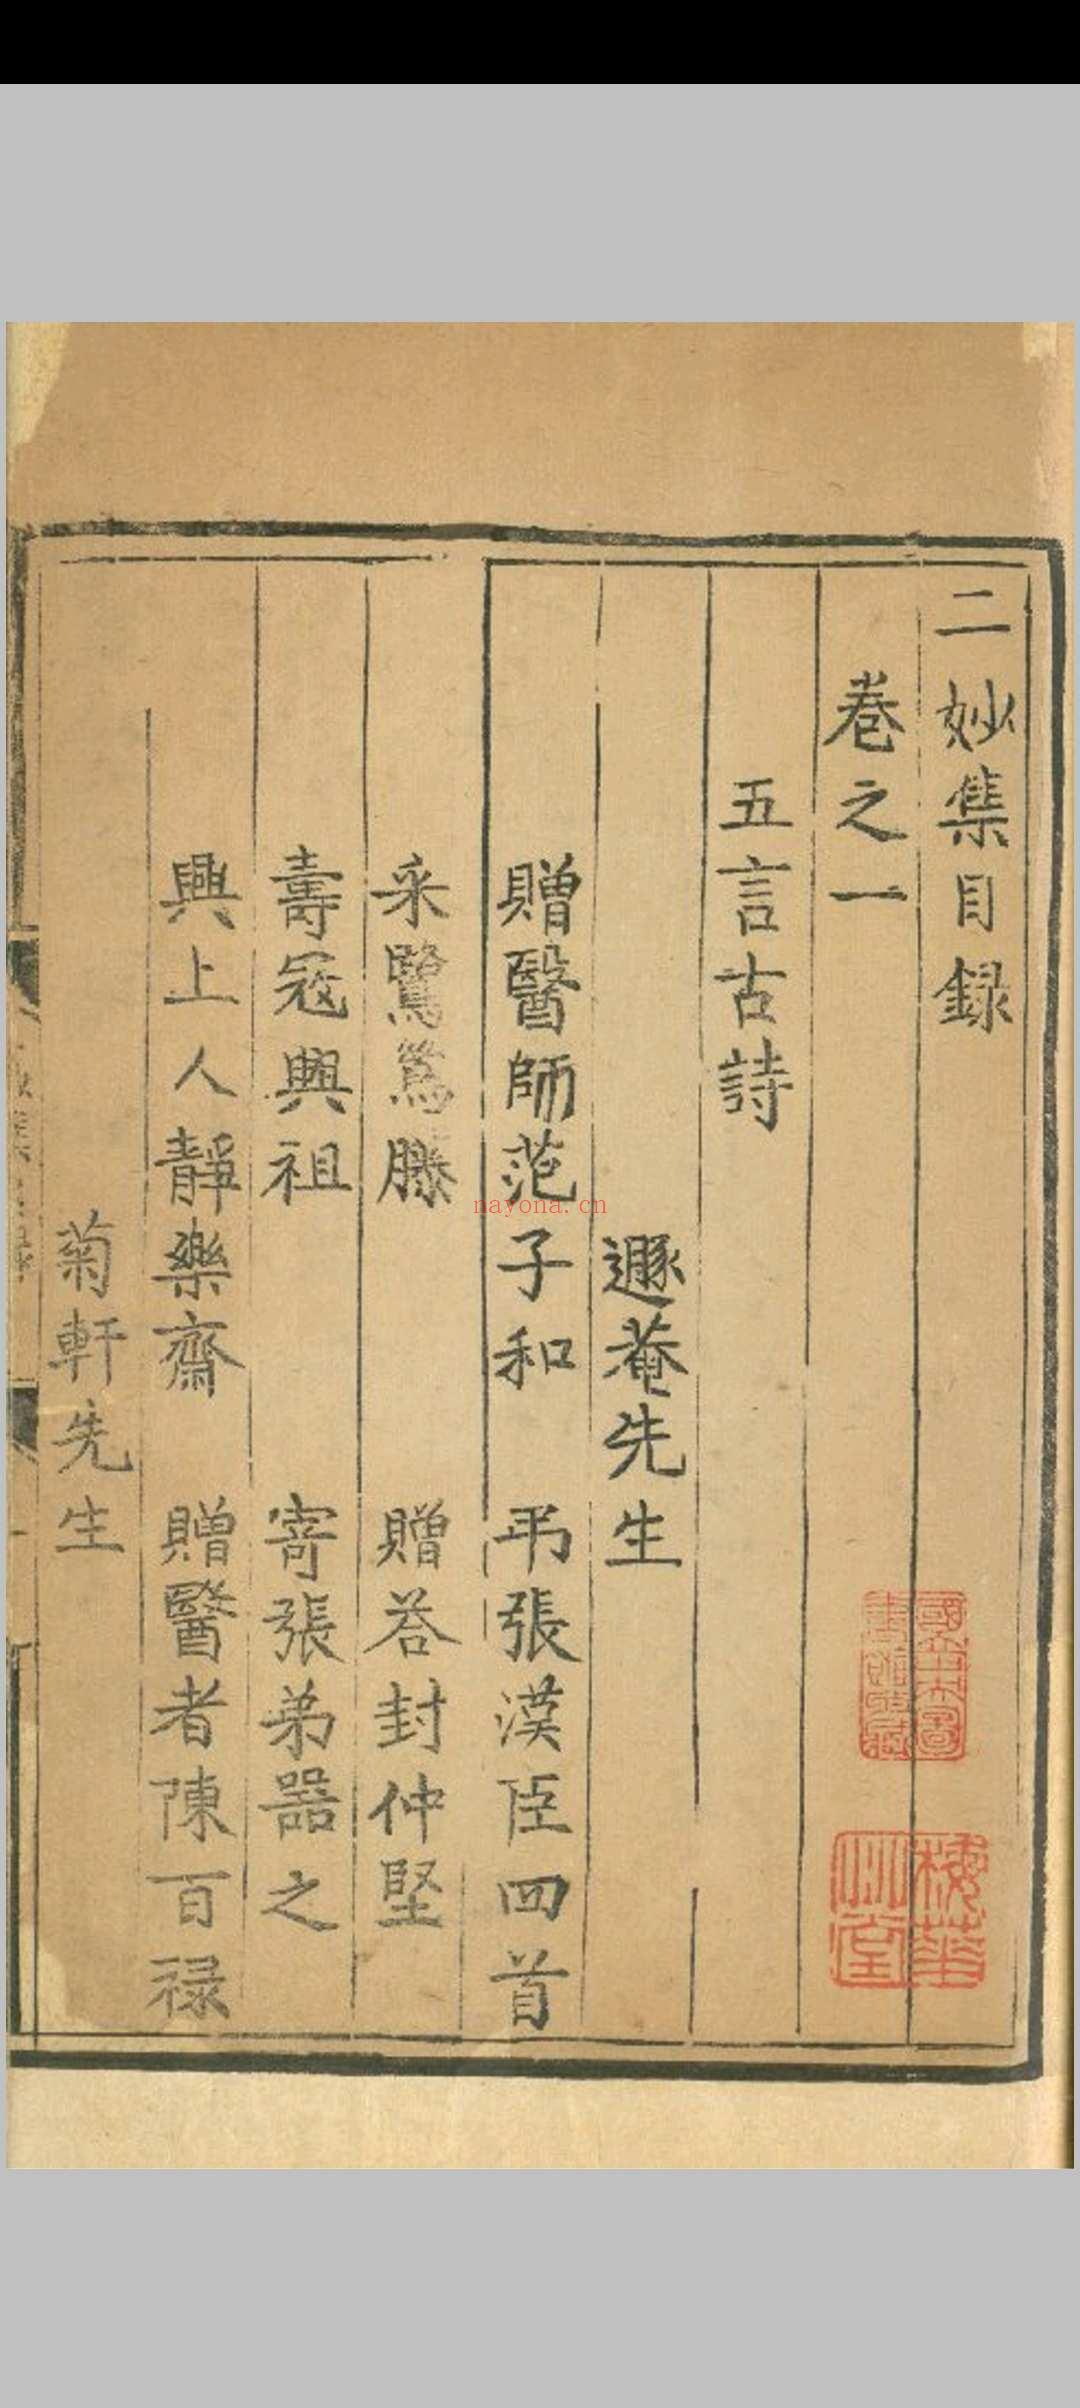 二妙集目録
卷之一
五言古詩
遯菴先生
贈醫師范子和　弔張漢臣四首
采鷺鷥藤　贈荅封仲堅
壽冦興祖　寄張弟器之
興上人靜樂齋　贈醫者陳百禄
菊軒先生
國立北平圖書館收藏
nayona.cn